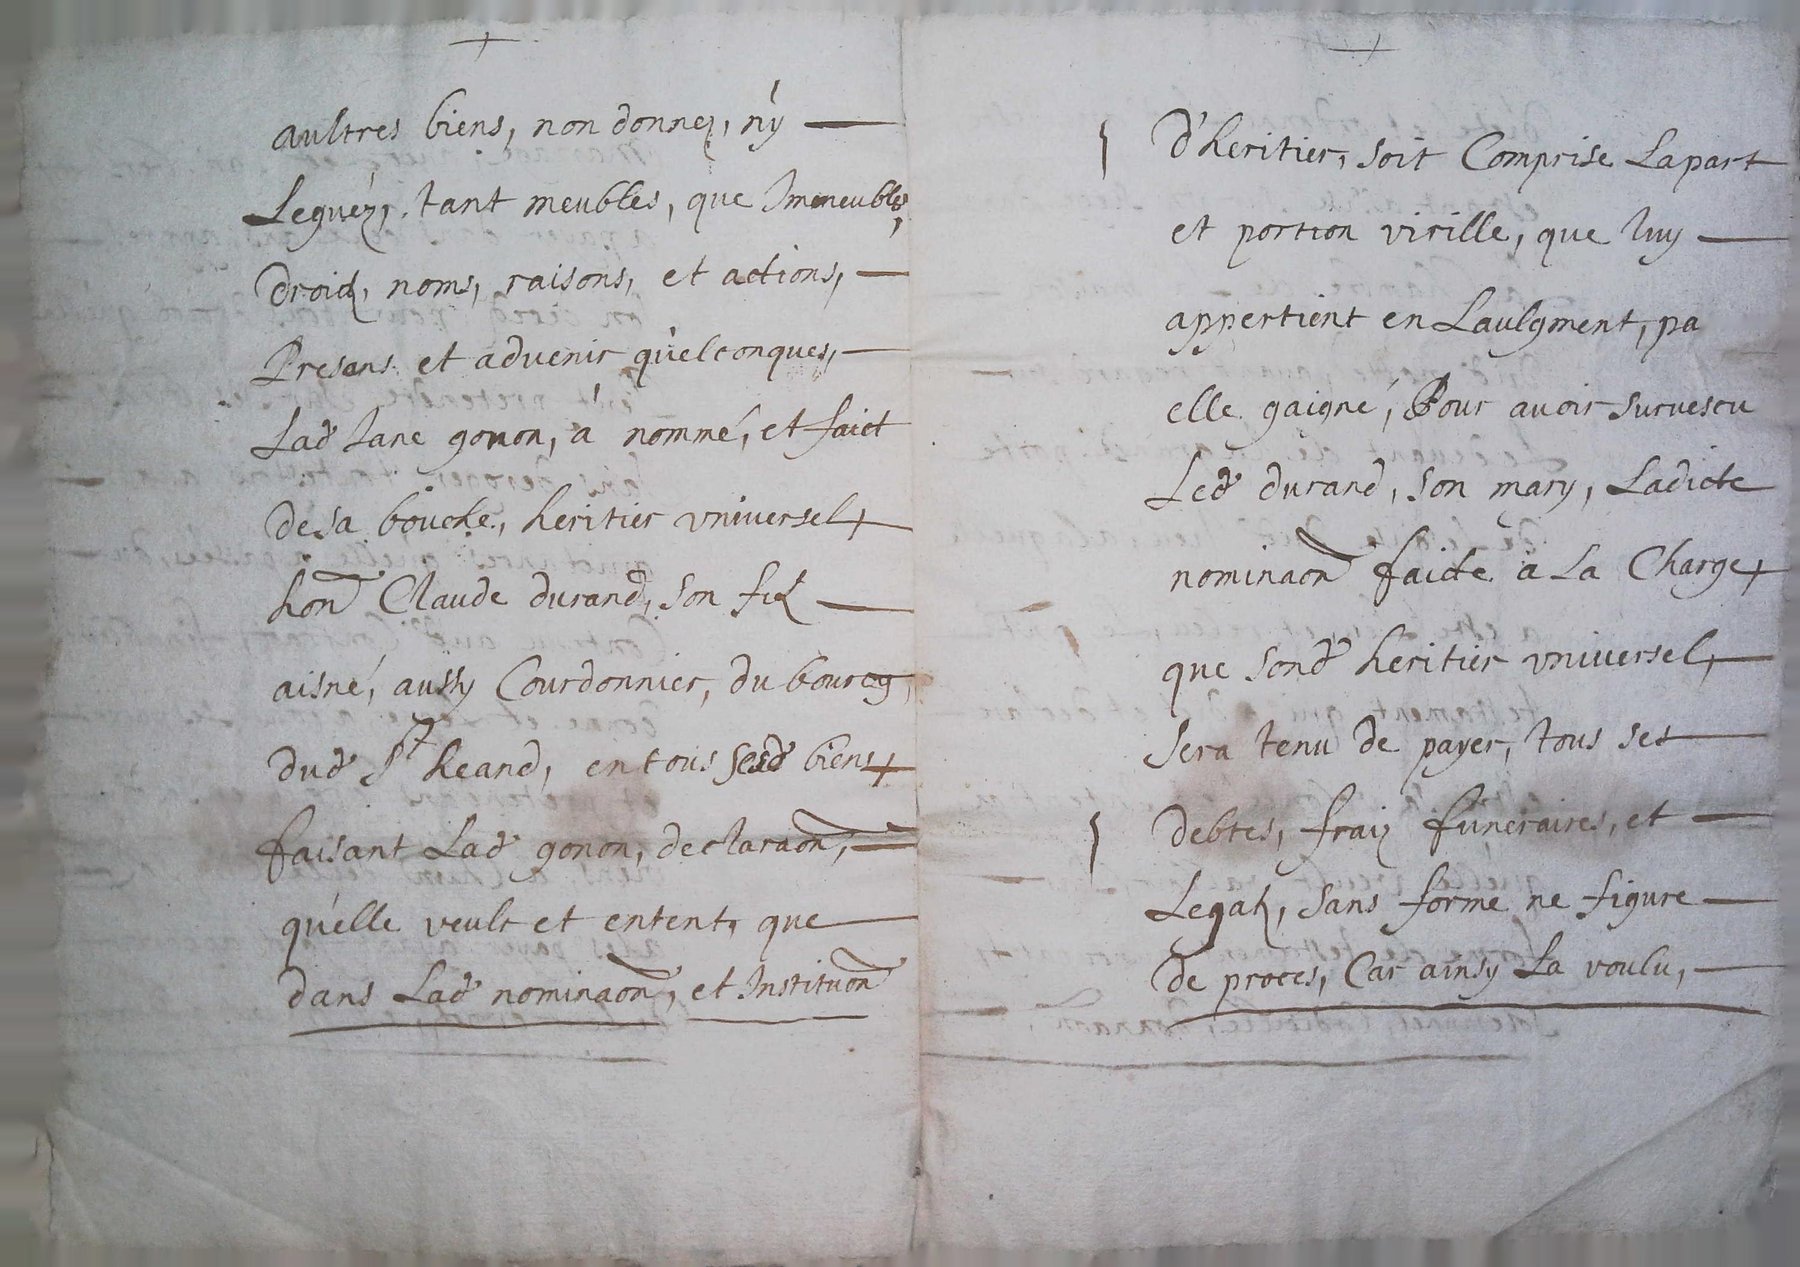 aultres biens, non donnez, n'y
Leguéz, tant meubles, que Immeubles,
droidz, noms, raisons, et actions,
Presans et advenir quelconques,
Lad Jane gonon, a nommé, et faict
de sa bouche, heritier vniversel
hon Claude durand, son filz
aisné, aussy Courdonnier, du bourcg
dud St heand, en tous sesd biens
faisant Lad gonon, declaraon,
qu'elle veult et entent, que
dans Lad nominaon, et Instituon
d'heritier, soit Comprise La part
et portion virille, que luy
appertient en Laulgment, pa
elle gaigné, Pour avoir survescu
Led durand, son mary, Ladicte
nominaon faicte a La Charge
que sond heritier vniversel,
sera tenu de payer, tous ses
debtes, fraiz funeraires, et
Legatz, sans forme ne figure
de proces, Car ainsy La voulu,